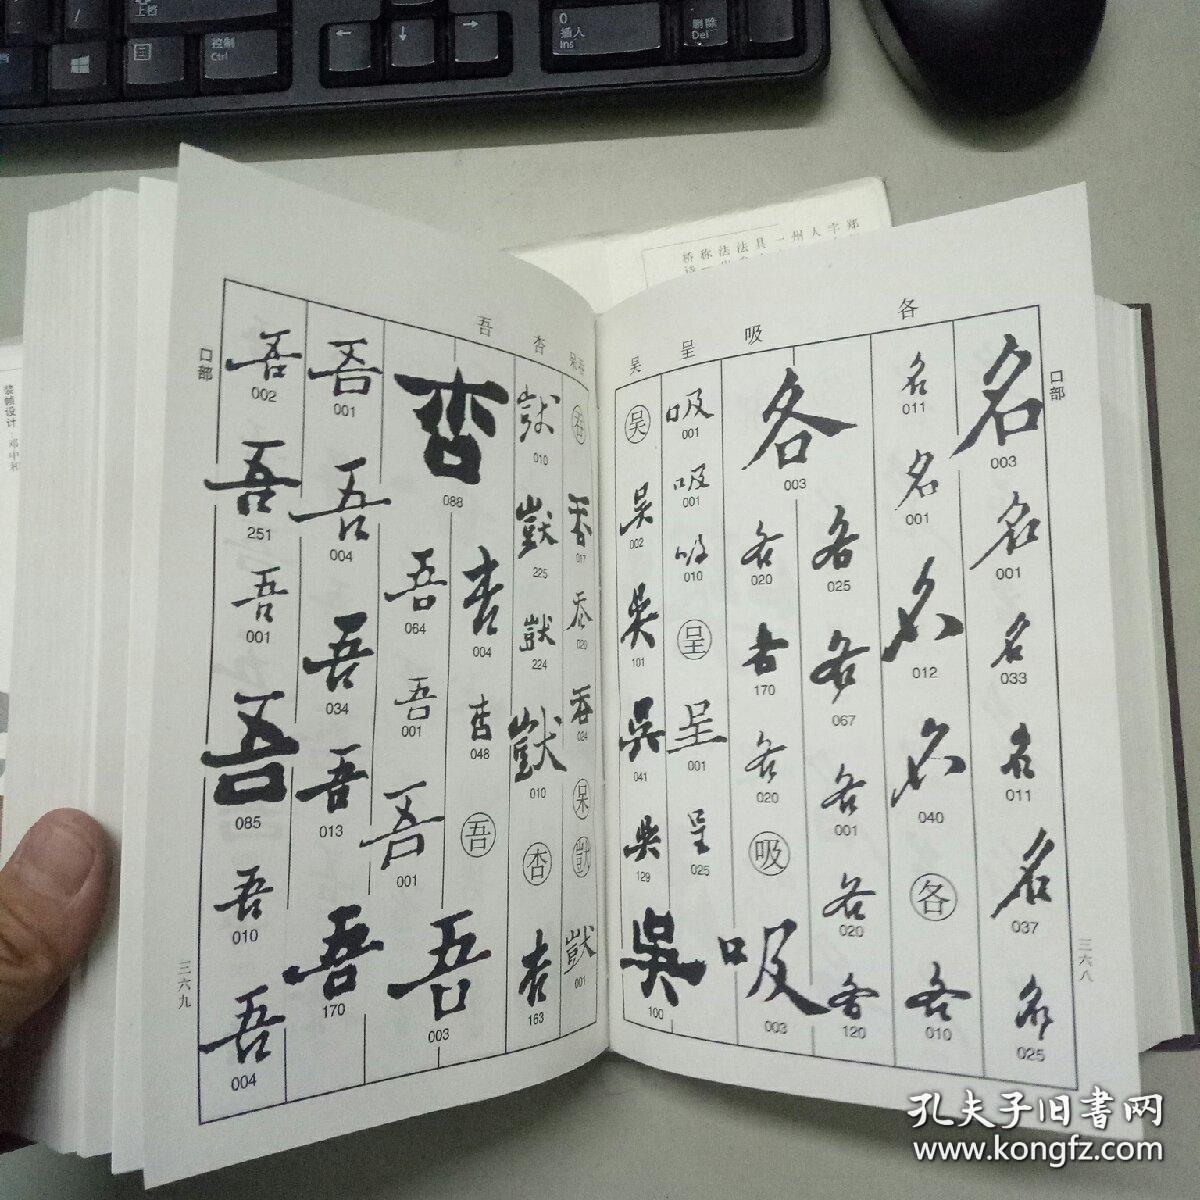 上档
控制
Ctrl
←
↓
→
0
插入
Ins
.
删除
Del
装帧设计
桥称法法具一州人字郑
各
吸
呈
吴
口部
名
003
名
001
名
033
名
011
名
037
名
025
名
011
名
001
名
012
名
040
各
各
010
各
025
各
067
各
001
各
020
各
120
各
003
各
020
各
170
各
020
吸
吸
003
吸
001
吸
001
吸
010
呈
呈
001
呈
025
吴
吴
002
吴
101
吴
041
吴
129
吴
100
三六八
杏
吾
017
020
024
呆
001
010
225
224
010
杏
杏
163
杏
088
杏
004
杏
048
吾
吾
003
吾
064
吾
001
吾
001
吾
001
吾
004
吾
034
吾
013
吾
170
吾
002
吾
251
吾
001
吾
085
吾
010
吾
004
口部
三六九
孔夫子旧書网
www.kongfz.com